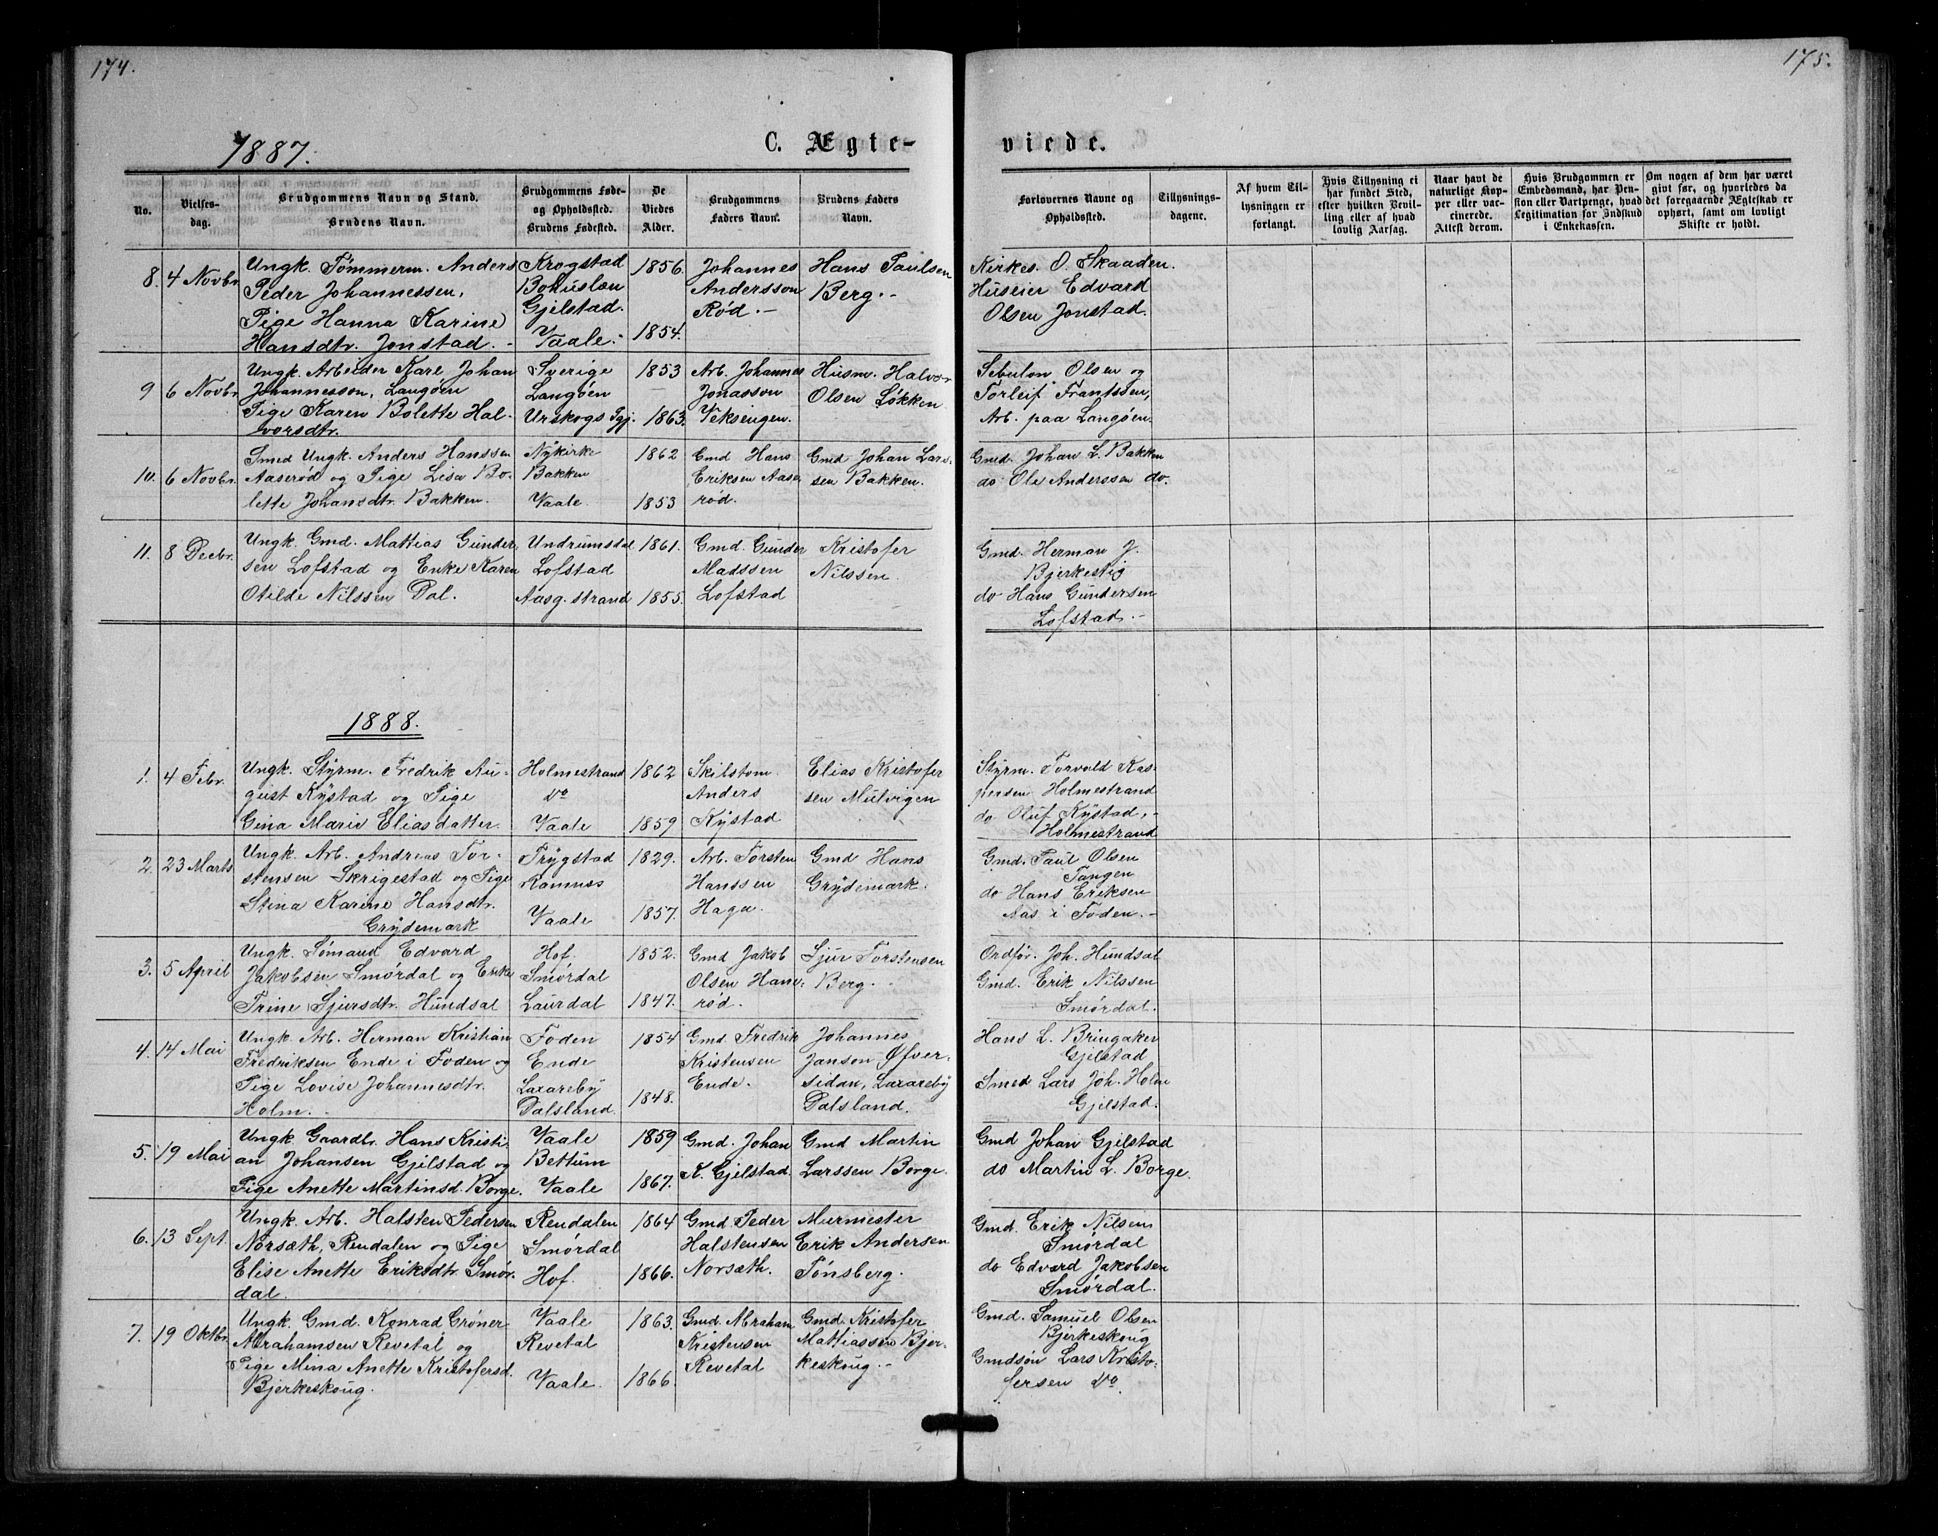 174.
175.
1887.
C. Ægte-
viede.
No.
Vielses-
dag.
Brudgommens Navn og Stand.
Brudens Navn.
Brudgommens Føde-
og Opholdssted.
Brudens Fødested.
De
Viedes
Alder.
Brudgommens
Faders Navn.
Brudens Faders
Navn.
Forlovernes Navne og
Opholdssted.
Tillysnings-
dagene.
Af hvem Til-
lysningen er
forlangt.
Hvis Tillysning ei
har fundet Sted,
efter hvilken Bevil-
ling eller af hvad
lovlig Aarsag.
Naar havt de
naturlige Kop-
per eller vac-
cinerede.
Attest derom.
Hvis Brudgommen er
Embedsmand, har Pen-
sion eller Vartpenge, hvad
Legitimation for Indskud
i Enkekassen.
Om nogen af dem har været
gift før, og hvorledes da
det foregaaende Ægteskab er
ophørt, samt om lovligt
Skifte er holdt.
8. 4 Novbr.
Ungk. Tømmerm. Anders
Peder Johannessen,
Pige Hanna Karine
Hansdtr. Jonstad.
Krogstad
Bohuslæn
Gjelstad.
Vaale.
1856.
1854.
Johannes
Andersson
Rød.
Hans Paulsen
Berg.
Kirkes. O. Skaaden.
Huseier Edvard
Olsen Jonstad.
9 6 Novbr.
Ungk. Arbeider Karl Johan
Johannesson, Langøen
Pige Karen Bolette Hal-
vorsdtr.
Sverige
Langøen
Urskogs Pgj.
1853
1863.
Arb. Johannes
Jonasson
Veksengen.
Husm. Halvor
Olsen Løkken
Sebulon Olsen og
Torleif Frantssen,
Arb. paa Langøen.
10. 6 Novbr.
Smed Ungk. Anders Hanssen
Aaserød og Pige Lisa Bo-
lette Johansdtr. Bakken.
Nykirke
Bakken
Vaale.
1862
1853
Gmd Hans
Eriksen Aase-
rød.
Gmd Johan Lars-
sen Bakken.
Gmd. Johan L. Bakken
do Ole Anderssen do.
11. 8 Decbr.
Ungk. Gmd. Mattias Gunder
sen Lofstad og Enke Karen
Otilde Nilssen Dal.
Undrumsdal
Lofstad
Aasg.strand
1861.
1855.
Gmd. Gunder
Madssen
Lofstad
Kristofer
Nilssen.
Gmd. Herman J.
Bjerkestig
do Hans Gundersen
Lofstad.
1888.
1. 4 Febr.
Ungk. Styrm. Fredrik Au-
gust Kystad og Pige
Gina Marie Eliasdatter.
Holmestrand
do
Vaale
1862
1859
Skilstom.
Anders
Kystad
Elias Kristofer
sen Mulvigen
Styrm. Torvald Kas-
persen Holmestrand
do Oluf Kystad,
Holmestrand
2. 23 Marts
Ungk. Arb. Andreas Tor-
stensen Skrigestad og Pige
Stina Karine Hansdtr.
Grydemark
Trygstad
Ramnæs
Vaale
1829.
1857.
Arb. Torsten
Hanssen
Haga.
Gmd Hans
Grydemark.
Gmd. Paul Olsen
Tangen
do Hans Eriksen
Aas i Foden.
3. 5 April
Ungk. Sømand Edvard
Jakobsen Smørdal og Enke
Trine Sjursdtr. Hundsal
Hof.
Smørdal
Laurdal
1852.
1847.
Gmd Jakob
Olsen Hane-
rød.
Sjur Torstensen
Berg.
Ordfør. Joh. Hundsal
Gmd. Erik Nilssen
Smørdal.
4. 14 Mai
Ungk. Arb. Herman Kristian
Fredriksen Ende i Foden og
Pige Lovise Johannesdtr.
Holm.
Foden
Ende
Laxareby
Dalsland.
1854
1848.
Gmd. Fredrik
Kristensen
Ende.
Johannes
Janson Øfver-
sidan, Laxareby
Dalsland.
Hans L. Bringaker
Gjelstad
Smed Lars Joh. Holm
Gjelstad.
5. 19 Mai
Ungk Gaardbr. Hans Kristi-
an Johansen Gjelstad og
Pige Anette Martinsd. Borge.
Vaale
Bettum
Vaale
1859
1867.
Gmd. Johan
K. Gjelstad.
Gmd Martin
Larssen Borge.
Gmd Johan Gjelstad
do Martin L. Borge.
6. 13 Sept.
Ungk. Arb. Halsten Pedersen
Norsæth, Rendalen og Pige
Elise Anette Eriksdtr. Smør-
dal.
Rendalen
Smørdal
Hof.
1864
1866.
Gmd. Peder
Halstensen
Norsæth.
Murmester
Erik Andersen
Tønsberg.
Gmd. Erik Nilsen
Smørdal
do Edvard Jakobsen
Smørdal.
7. 19 Oktbr.
Ungk. Gmd. Konrad Grøner
Abrahamsen Revetal og
Pige Mina Anette Kristofersd.
Bjerkeskoug.
Vaale
Revetal
Vaale.
1863.
1866.
Gmd. Abraham
Kristensen
Revetal
Gmd. Kristofer
Mattiassen Bjer-
keskoug.
Gmd. Samuel Olsen
Bjerkeskoug
Gmdsøn Lars Kristo-
fersen do.